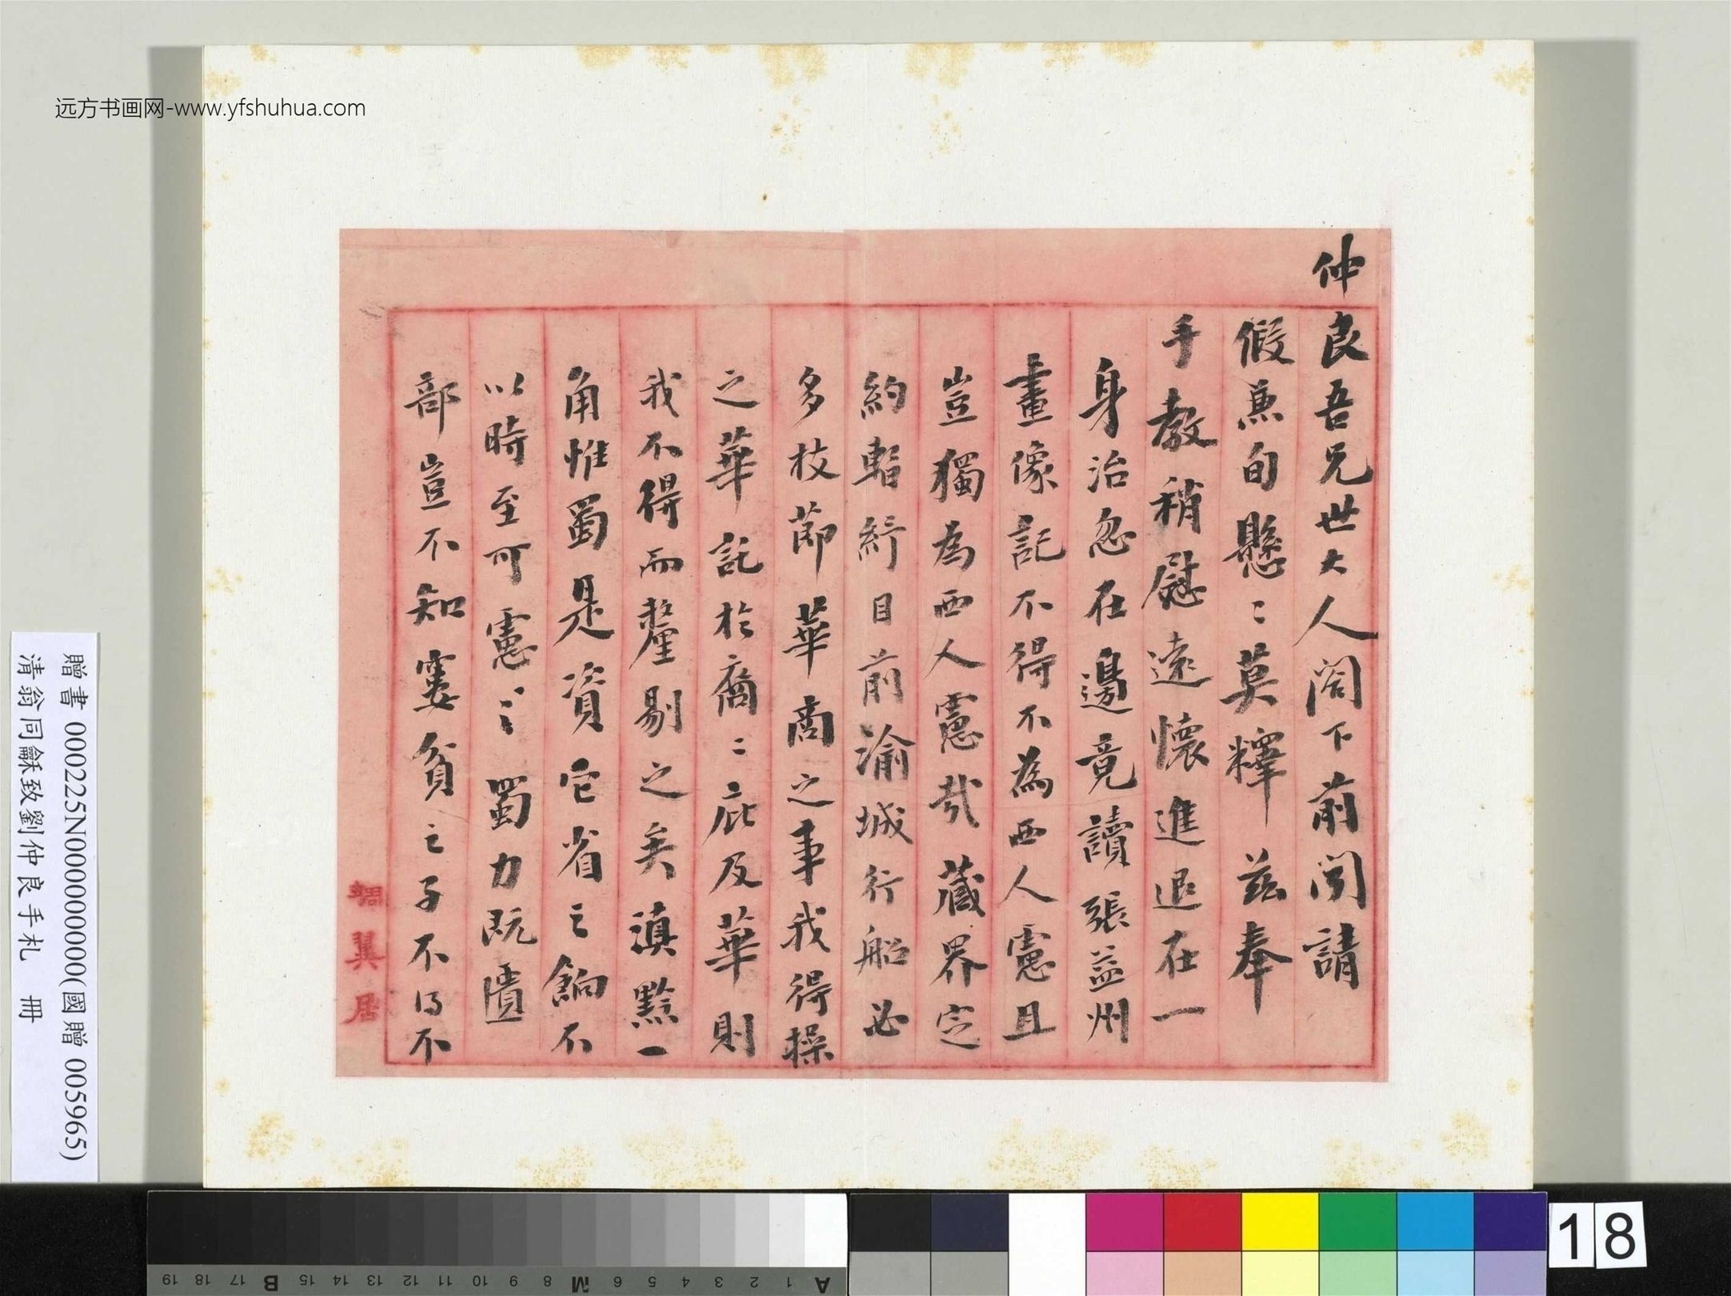 远方书画网-www.yfshuhua.com
仲良吾兄世大人閣下前聞請
假兼旬懸〻莫釋茲奉
手教稍慰遠懷進退在一
身治忽在邊竟讀張益州
畫像記不得不為西人慮且
豈獨為西人慮哉藏界定
約暫紓目前渝城行船必
多枝節華商之事我得操
之華託於裔〻庇及華則
我不得而釐剔之矣滇黔一
角惟蜀是資它省之餉不
以時至可慮〻〻蜀力既匱
部豈不知寠貧之子不得不
翼居
贈書 000225N000000000(國贈 005965)
清翁同龢致劉仲良手札 冊
18
19 18 17 B 16 15 14 13 12 11 10 9 8 M 7 6 5 4 3 2 1 A